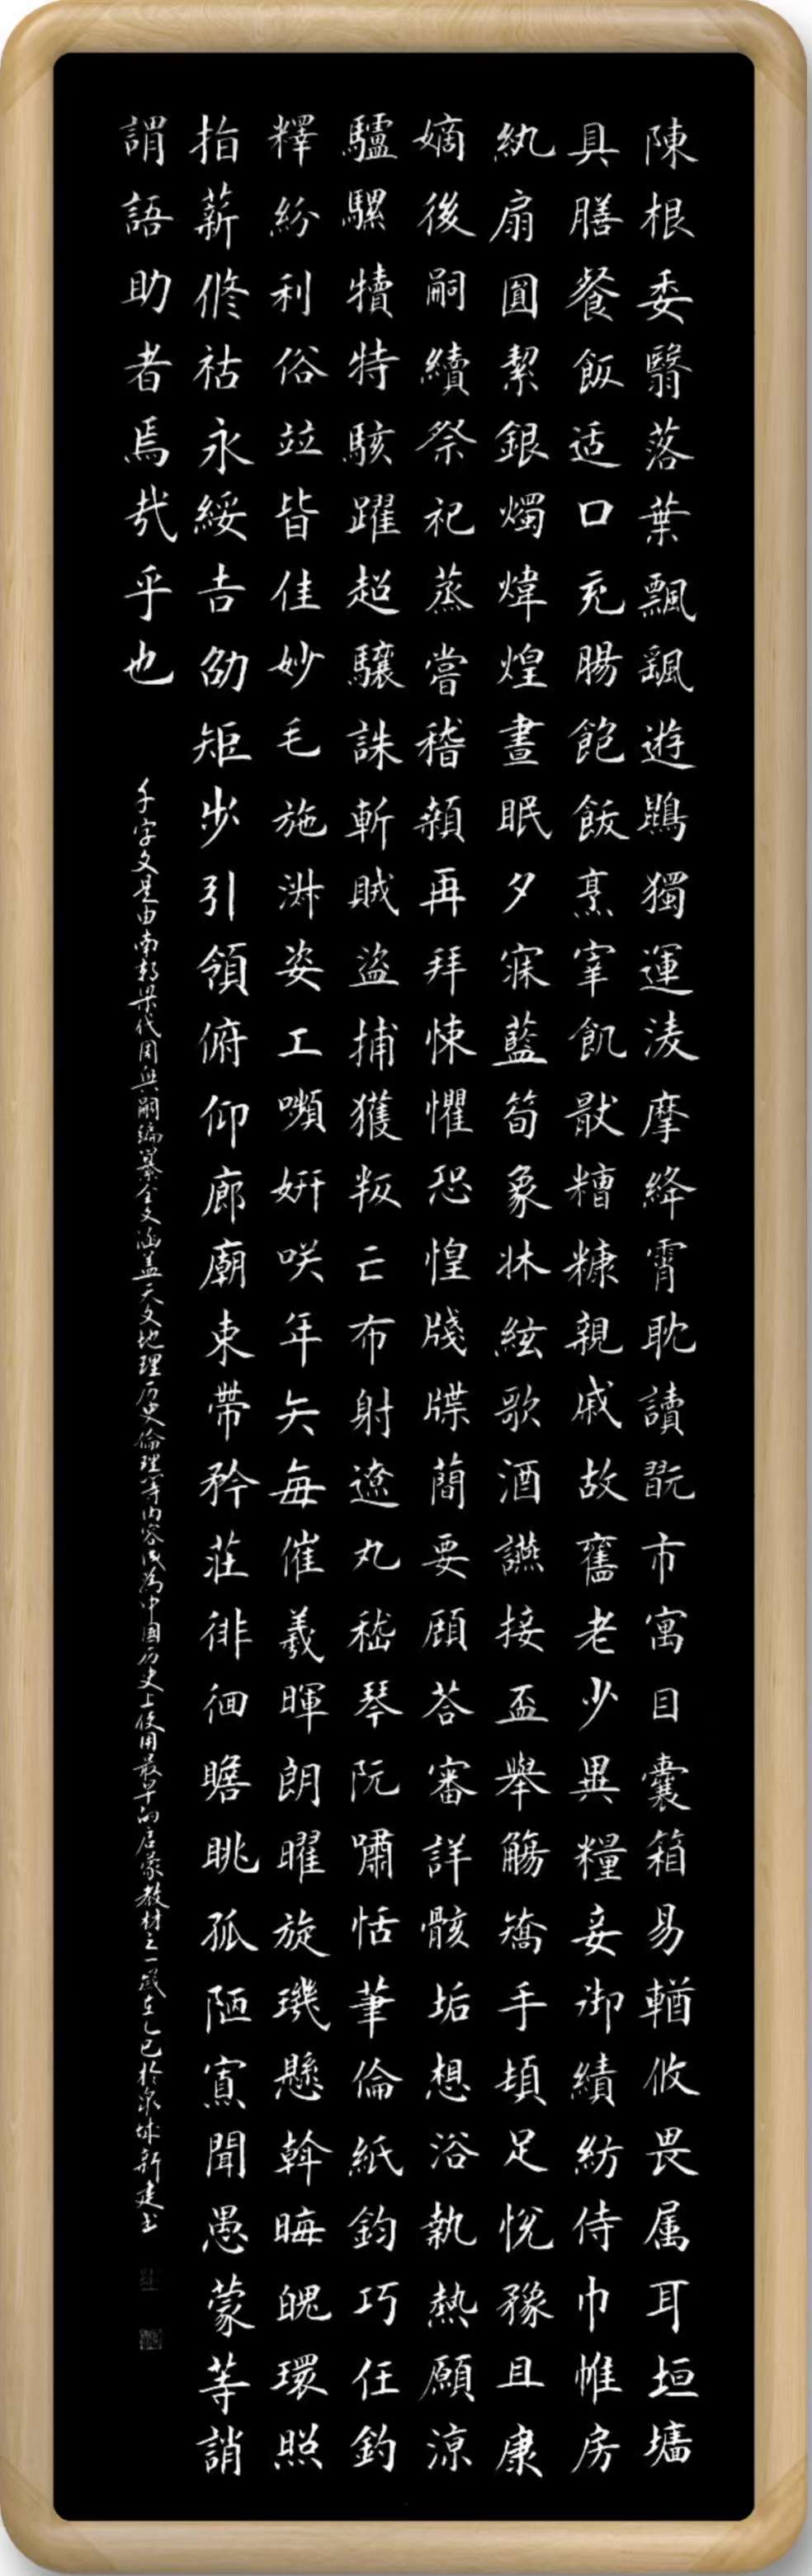 陳根委翳落葉飄颻遊鵾獨運淩摩絳霄耽讀翫市寓目囊箱易輶攸畏属耳垣墻
具膳餐飯适口充腸飽飫烹宰飢猒糟糠親戚故舊老少異糧妾御績紡侍巾帷房
紈扇圓潔銀燭煒煌晝眠夕寐藍筍象牀絃歌酒讌接盃舉觴矯手頓足悅豫且康
嫡後嗣續祭祀蒸嘗稽顙再拜悚懼恐惶牋牒蕳要顧荅審詳骸垢想浴執熱願涼
驢騾犢特駭躍超驤誅斬賊盜捕獲叛亡布射遼丸嵇琴阮嘯恬筆倫紙鈞巧任釣
釋紛利俗竝皆佳妙毛施淑姿工嚬妍咲年矢每催羲暉朗曜旋璣懸斡晦魄環照
指薪修祜永綏吉劭矩步引領俯仰廊廟束帶矜莊徘徊瞻眺孤陋寡聞愚蒙等誚
謂語助者焉哉乎也
千字文是由南朝梁代周興嗣编纂全文涵盖天文地理历史倫理等内容成為中国历史上使用最早的启蒙教材之一歲在乙巳於泉城新建书